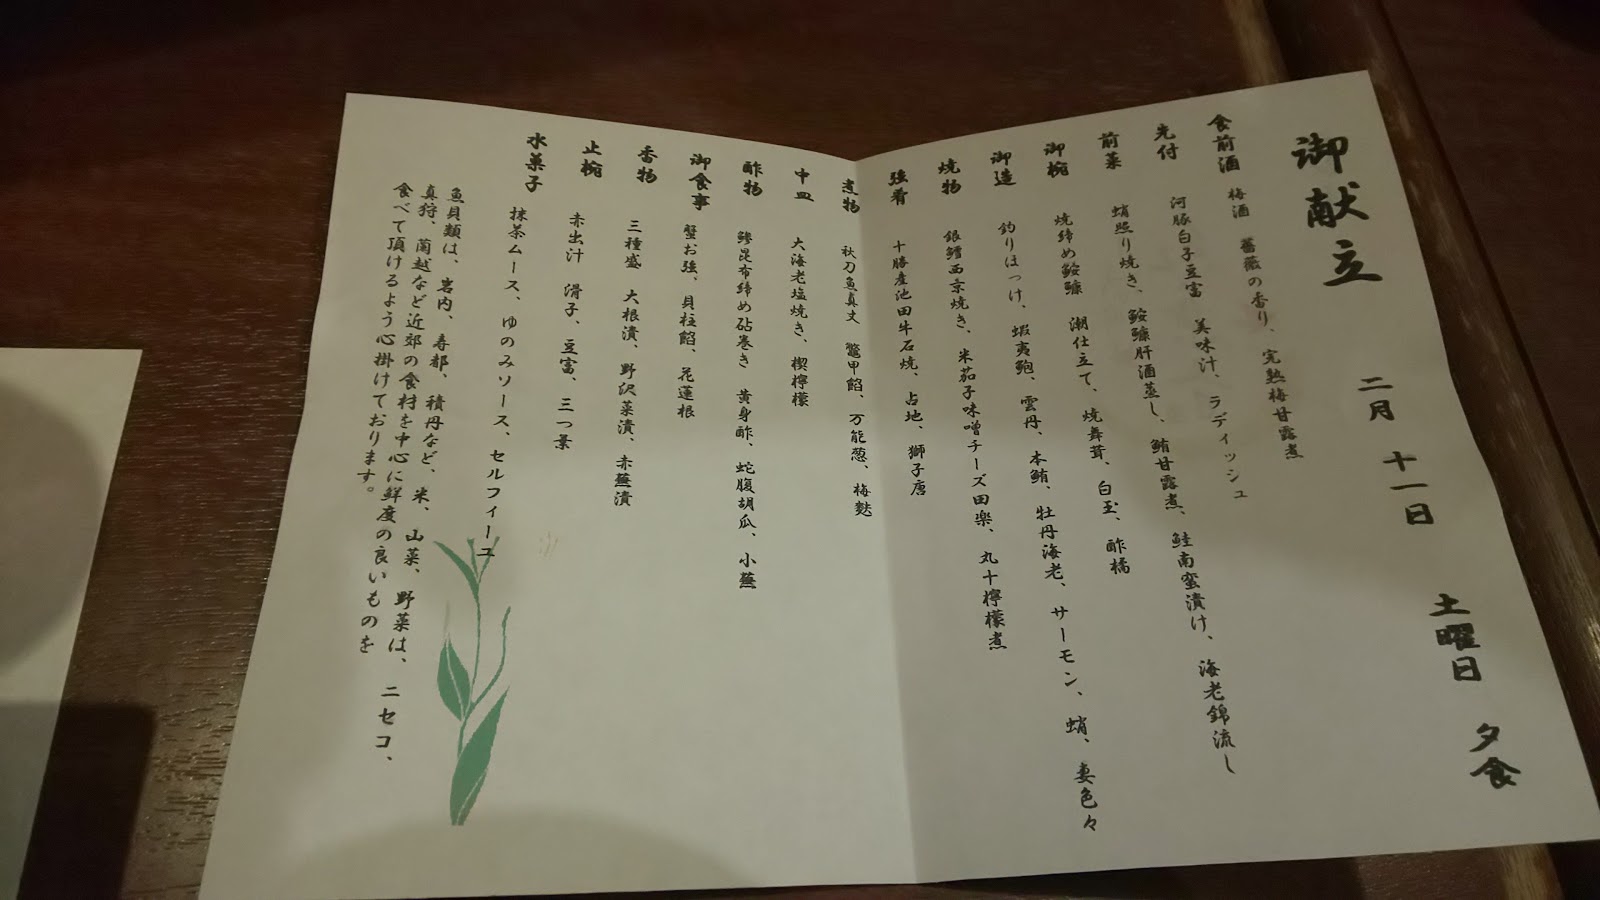 御献立 二月 十一日 土曜日 夕食
食前酒 梅酒 薔薇の香り、完熟梅甘露煮
先付 河豚白子豆富 美味汁、ラディッシュ
前菜 蛸照り焼き、鮟鱇肝酒蒸し、鮪甘露煮、鮭南蛮漬け、海老錦流し
御椀 焼締め鮟鱇 潮仕立て、焼舞茸、白玉、酢橘
御造 釣りほっけ、蝦夷鮑、雲丹、本鮪、牡丹海老、サーモン、蛸、妻色々
焼物 銀鱈西京焼き、米茄子味噌チーズ田楽、丸十檸檬煮
強肴 十勝産池田牛石焼、占地、獅子唐
煮物 秋刀魚真丈 鼈甲餡、万能葱、梅麩
中皿 大海老塩焼き、楔檸檬
酢物 鯵昆布締め砧巻き 黄身酢、蛇腹胡瓜、小蕪
御食事 蟹お強、貝柱餡、花蓮根
香物 三種盛 大根漬、野沢菜漬、赤蕪漬
止椀 赤出汁 滑子、豆富、三つ葉
水菓子 抹茶ムース、ゆのみソース、セルフィーユ
魚貝類は、岩内、寿都、積丹など、米、山菜、野菜は、ニセコ、
真狩、蘭越など近郊の食材を中心に鮮度の良いものを
食べて頂けるよう心掛けております。